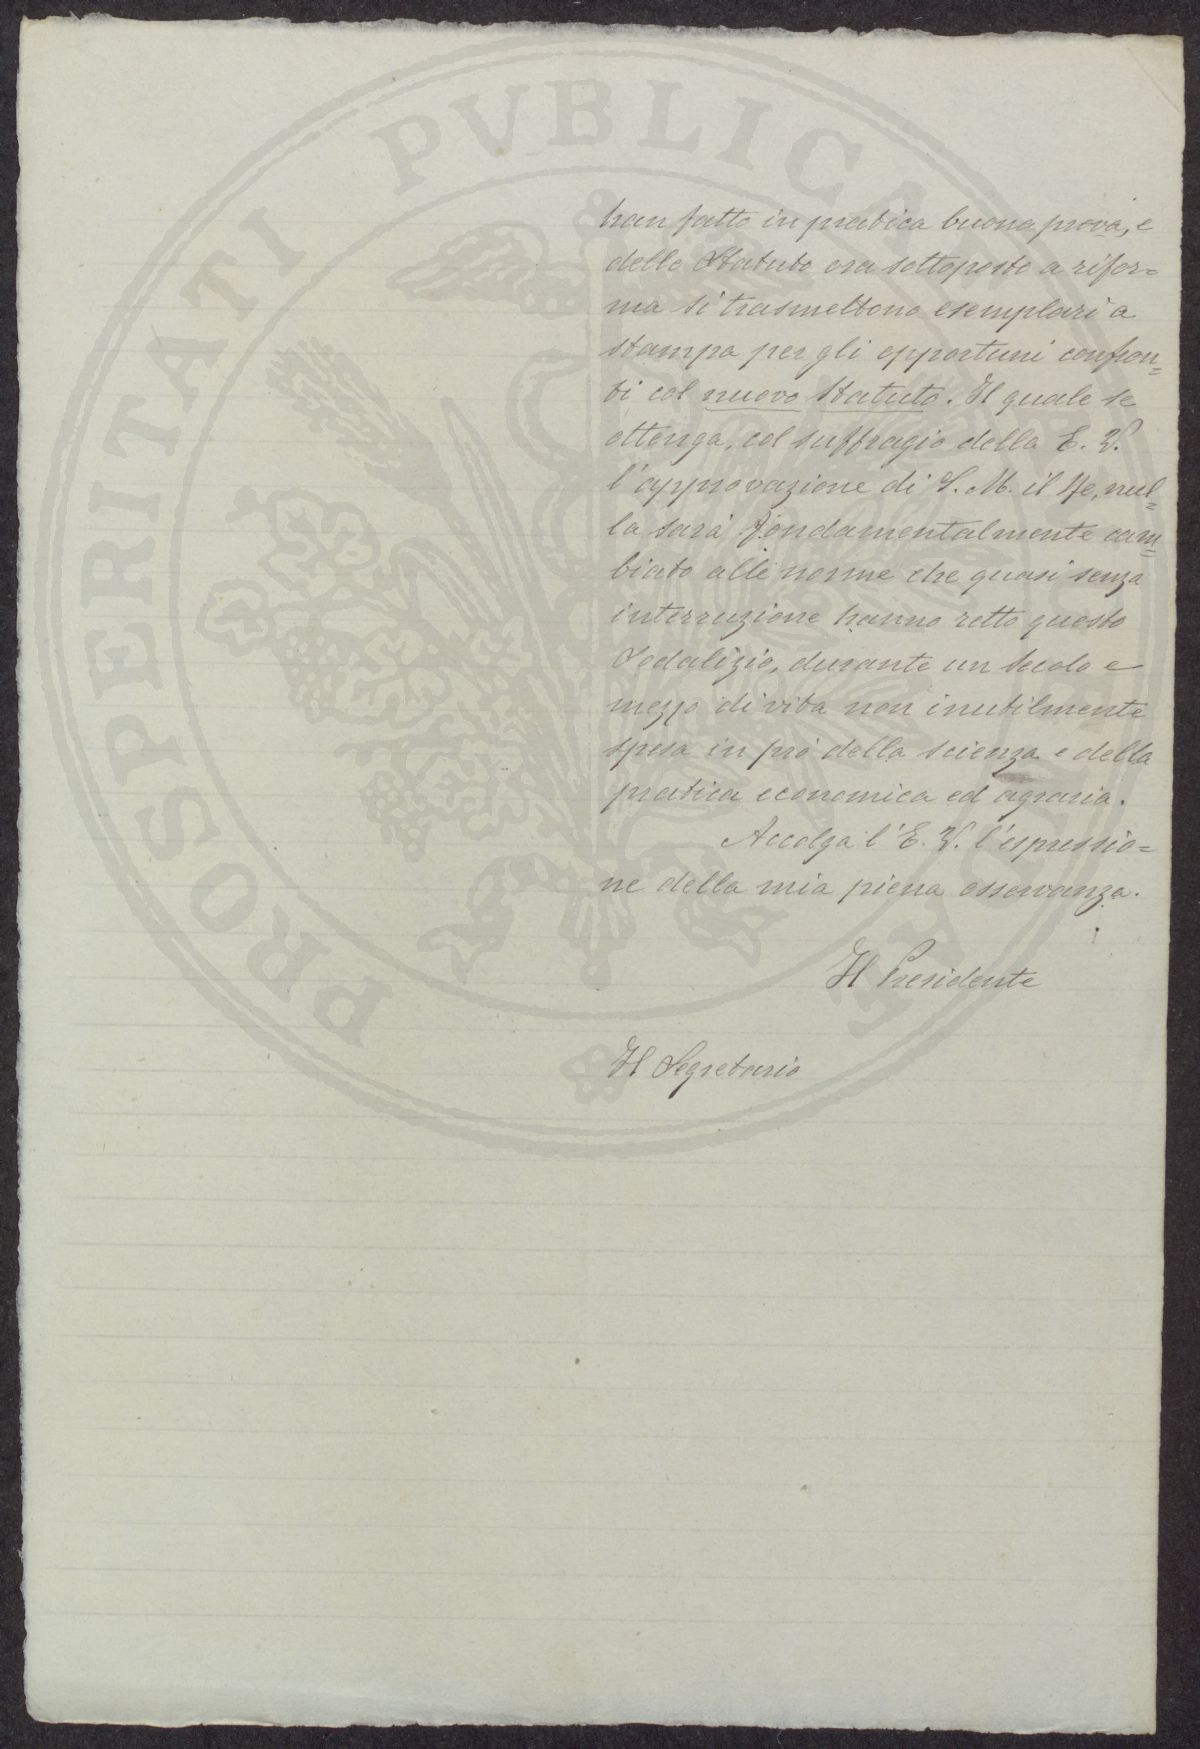 PROSPERITATI PVBLICAE AVGENDAE
han fatto in pratica buona prova, e
dello Statuto ora sottoposto a rifor=
ma si trasmettono esemplari a
stampa per gli opportuni confron=
ti col nuovo Statuto. Il quale se
ottenga, col suffragio della E. V.
l'approvazione di S. M. il Re, nul=
la sarà fondamentalmente cam=
biato alle norme che quasi senza
interruzione hanno retto questo
Sodalizio, durante un secolo e
mezzo di vita non inutilmente
spesa in pro della scienza e della
pratica economica ed agraria.
Accolga l'E. V. l'espressio=
ne della mia piena osservanza.
Il Presidente
Il Segretario